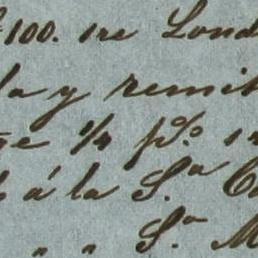 100. ire Lond
la y remit
ge 1/4 p%
á la S.ª C
" " S.ª M